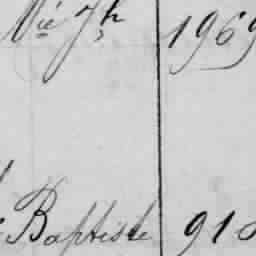 Vié Jh 1969
Baptiste 91